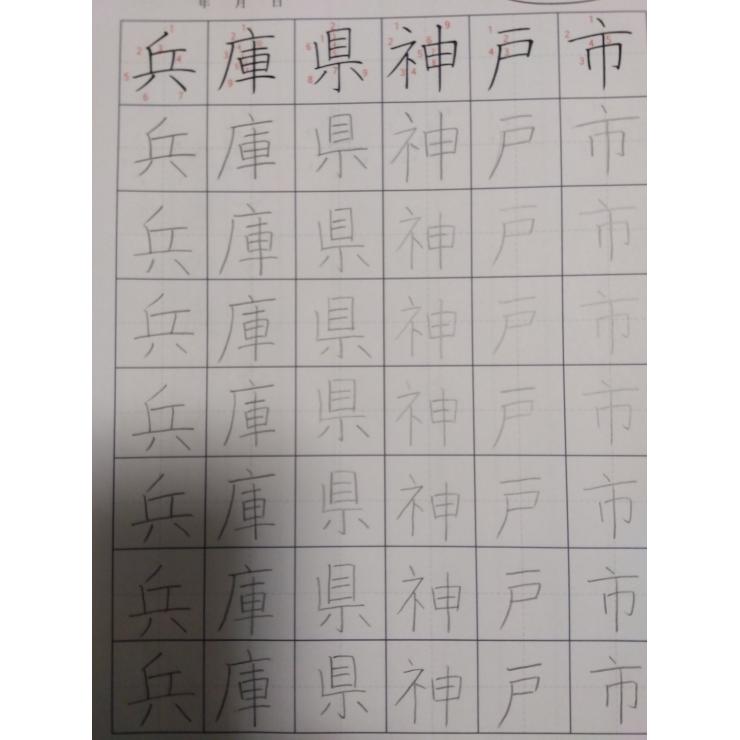 年 月 日
兵庫県神戸市
兵庫県神戸市
兵庫県神戸市
兵庫県神戸市
兵庫県神戸市
兵庫県神戸市
兵庫県神戸市
兵庫県神戸市